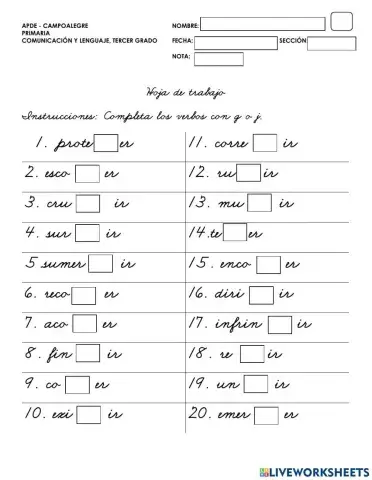 APDE - CAMPOALEGRE
PRIMARIA
COMUNICACIÓN Y LENGUAJE, TERCER GRADO
NOMBRE:
FECHA: SECCIÓN
NOTA:
Hoja de trabajo
Instrucciones: Completa los verbos con g o j.
1. prote er
11. corre ir
2. esco er
12. ru ir
3. cru ir
13. mu ir
4. sur ir
14. te er
5 sumer ir
15. enco er
6. reco er
16. diri ir
7. aco er
17. infrin ir
8. fin ir
18. re ir
9. co er
19. un ir
10. exi ir
20. emer er
LIVEWORKSHEETS